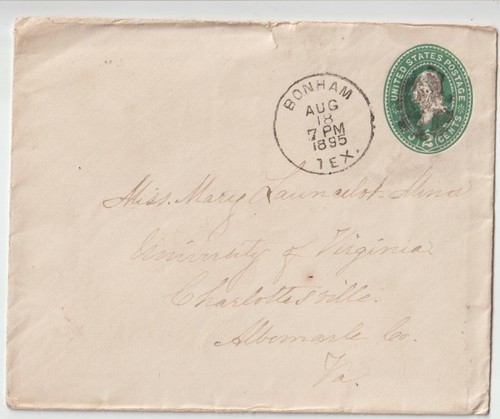 UNITED STATES POSTAGE
2 CENTS
BONHAM
AUG
18
7 PM
1895
TEX.
Miss. Mary Launcelot Minor
University of Virginia
Charlottesville.
Albemarle Co.
Va.